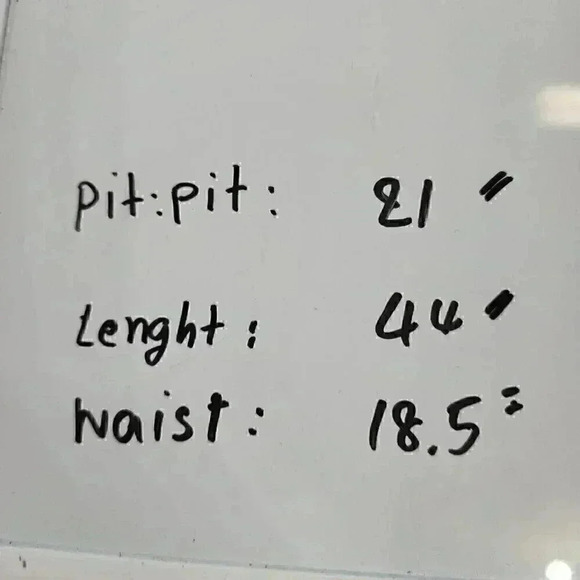 pit:pit: 21"
Lenght: 44"
waist: 18.5"